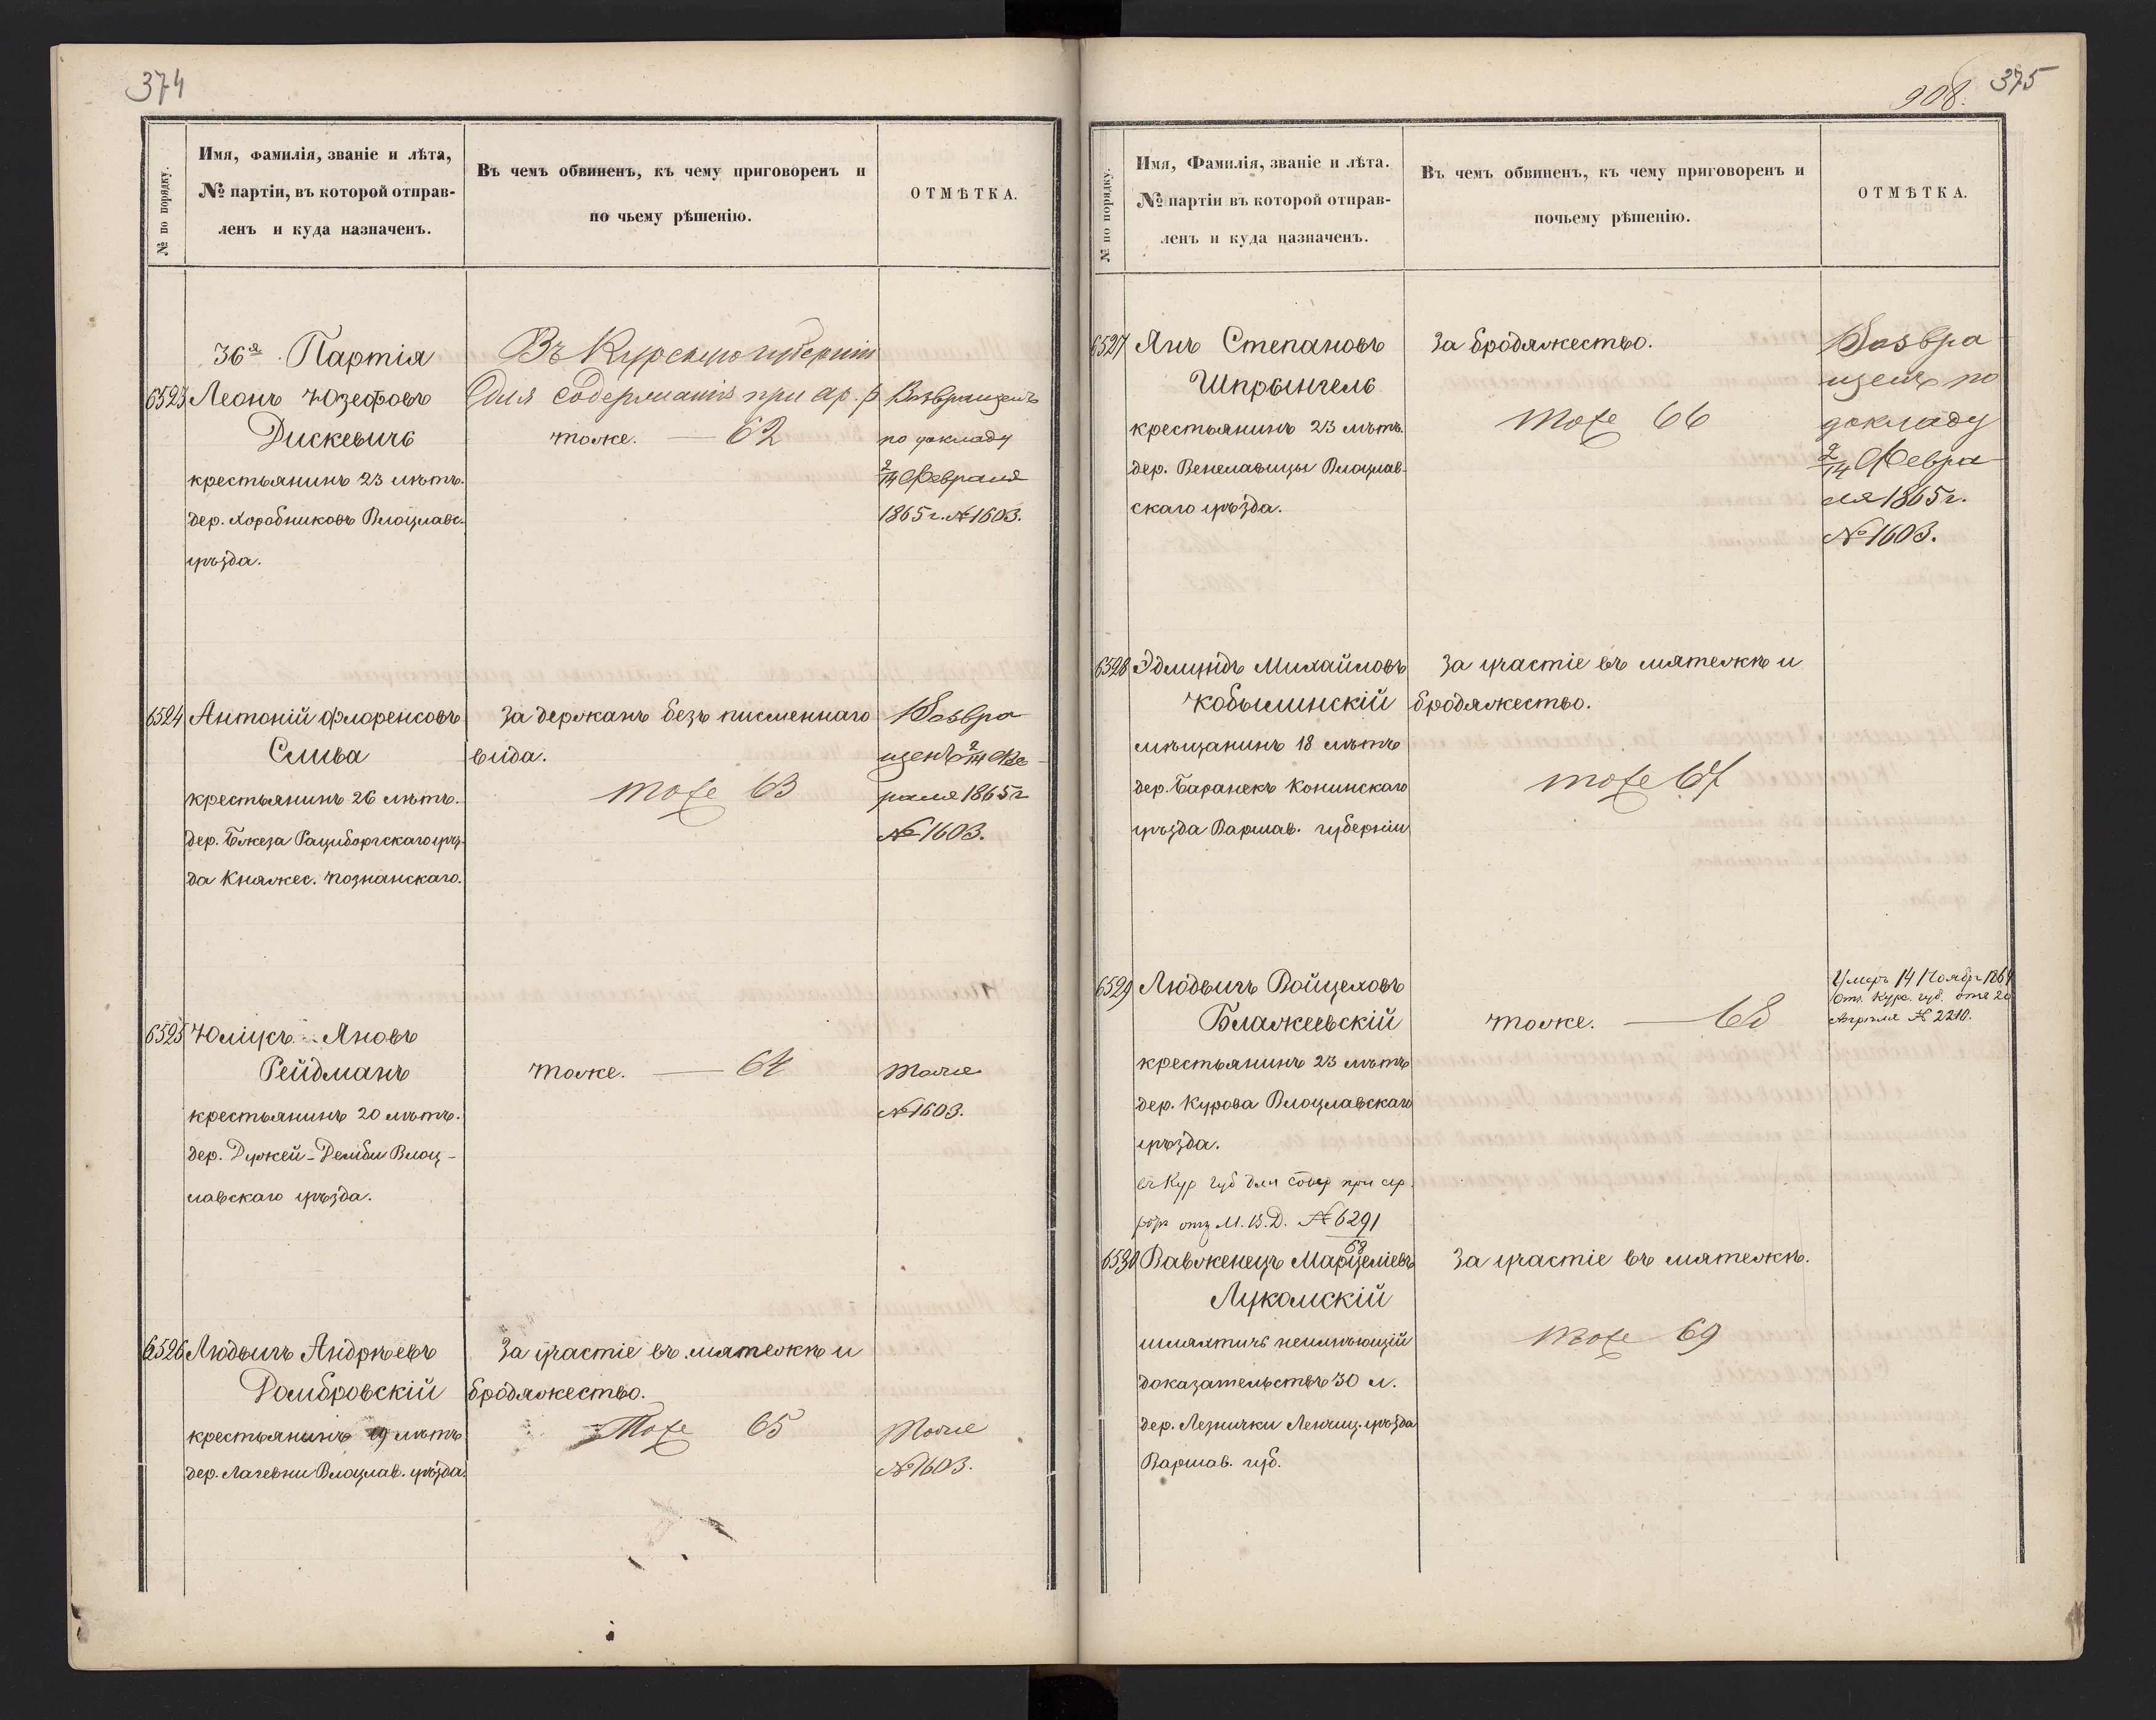 374
№ по порядку.
Имя, фамилія, званіе и лѣта,
№ партіи, въ которой отправ-
ленъ и куда назначенъ.
Въ чемъ обвиненъ, къ чему приговоренъ и
по чьему рѣшенію.
ОТМѢТКА.
36я Партія
Въ Курскую губернію
для содержанія при ар. р
6523 Леонъ Юзефовъ
Дискевичъ
крестьянинъ 23 лѣтъ.
дер. Хоробниковъ Влоцлавс.
уѣзда.
тоже. — 62
Возвращенъ
по докладу
2/14 Февраля
1865 г. № 1603.
6524 Антоній Флоренсовъ
Слива
крестьянинъ 26 лѣтъ.
дер. Бжеза Рациборгскаго уѣз-
да Княжес. Познанскаго.
За держанъ безъ писменнаго
вида.
тоже 63
Возвра
щенъ 2/14 Фев
раля 1865 г
№ 1603.
6525 Юліусъ Яновъ
Рейдманъ
крестьянинъ 20 лѣтъ.
дер. Дужей-Дембы Влоц-
лавскаго уѣзда.
тоже. — 64
тоже
№ 1603.
6526 Людвигъ Андрѣевъ
Домбровскій
крестьянинъ 19 лѣтъ
дер. Лагевни Влоцлав. уѣзда.
За участіе въ мятежѣ и
бродяжество.
Тоже 65
тоже
№ 1603.
375
908.
№ по порядку.
Имя, Фамилія, званіе и лѣта.
№ партіи въ которой отправ-
ленъ и куда назначенъ.
Въ чемъ обвиненъ, къ чему приговоренъ и
почьему рѣшенію.
ОТМѢТКА.
6527 Янъ Степановъ
Шпрынгель
крестьянинъ 23 лѣтъ.
дер. Венелавицы Влоцлав-
скаго уѣзда.
За бродяжество.
тоже 66
Возвра
щенъ по
докладу
2/14 Февра
ля 1865 г.
№ 1603.
6528 Эдмундъ Михайловъ
Кобылинскій
мѣщанинъ 18 лѣтъ
дер. Баранекъ Конинскаго
уѣзда Варшав. губерніи
За участіе въ мятежѣ и
бродяжество.
тоже 67
6529 Людвигъ Войцеховъ
Блажеевскій
крестьянинъ 23 лѣтъ
дер. Курова Влоцлавскаго
уѣзда.
въ Кур губ для содер при ар.
отз М. В. Д. № 6291
58
тоже. — 68
Умеръ 14 Ноябр 1864
отз. Курс. губ. отъ 20
Апрѣля № 2210.
6530 Вавженецъ Марцеліевъ
Лукомскій
шляхтичъ неимѣющій
доказательствъ 30 л.
дер. Лезнички Ленчиц. уѣзда
Варшав. губ.
За участіе въ мятежѣ.
тоже 69